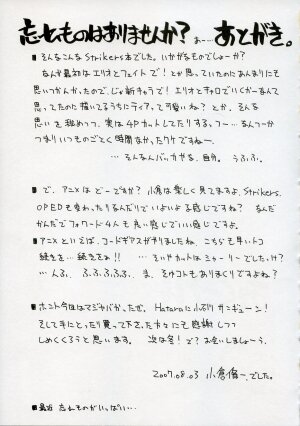 忘れものはありませんか？ あ…あとがき。
■そんなこんなStrikers本でした。いかがなものでしょーか？
なんか最初はエリオとフェイトで！とか思っていたのにあんまりにも
思いつかんかったので、じゃ新キャラで！エリオとキャロでいくかーなんて
思ってたのに描いてるうちにティアって可愛いね？とか。そんな
思いを秘めつつ、実は4Pカットしてたりする。つー…なんつーか
つまりいつものごとく時間なかったワケですねー。
…そんなんばっかやな、自分。うふふ。
■で、アニメはどーですか？小倉は楽しく見てますよ。Strikers.
OPEDも変わったりなんだりでいよいよな感じですね？なんだ
かんだでフォワード4人も良い感じでいい感じですよ。
■アニメといえば、コードギアスが終りましたね。こちらも早いトコ
続きを…続きをぉ!! …そいやカットはシャーリーでした。け？
…んふ。ふ、ふ、ふ、ふ、ふ。ま、そゆコトもありまくりですよね？
■ホント今回はマジヤバかったぜ。Hataraに小ぶりサンキューン！
そして手にとったり買って下さった方々にも感謝しつつ
しめくくろうと思います。次は冬！で？お会いしましょーう。
2007.08.03 小倉脩一、でした。
■最近 忘れものがいっぱい…